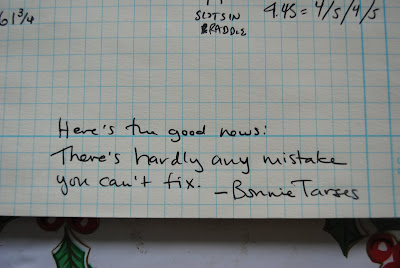 61 3/4
SLOTS IN
BRADDLE
4.45 = 4/5/4/5
Here's the good news:
There's hardly any mistake
you can't fix. —Bonnie Tarses